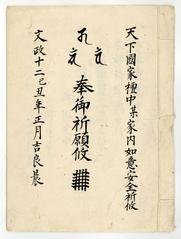 天下國家種中某家内如意安全祈攸
奉御祈願攸
文政十二己丑年正月吉良辰